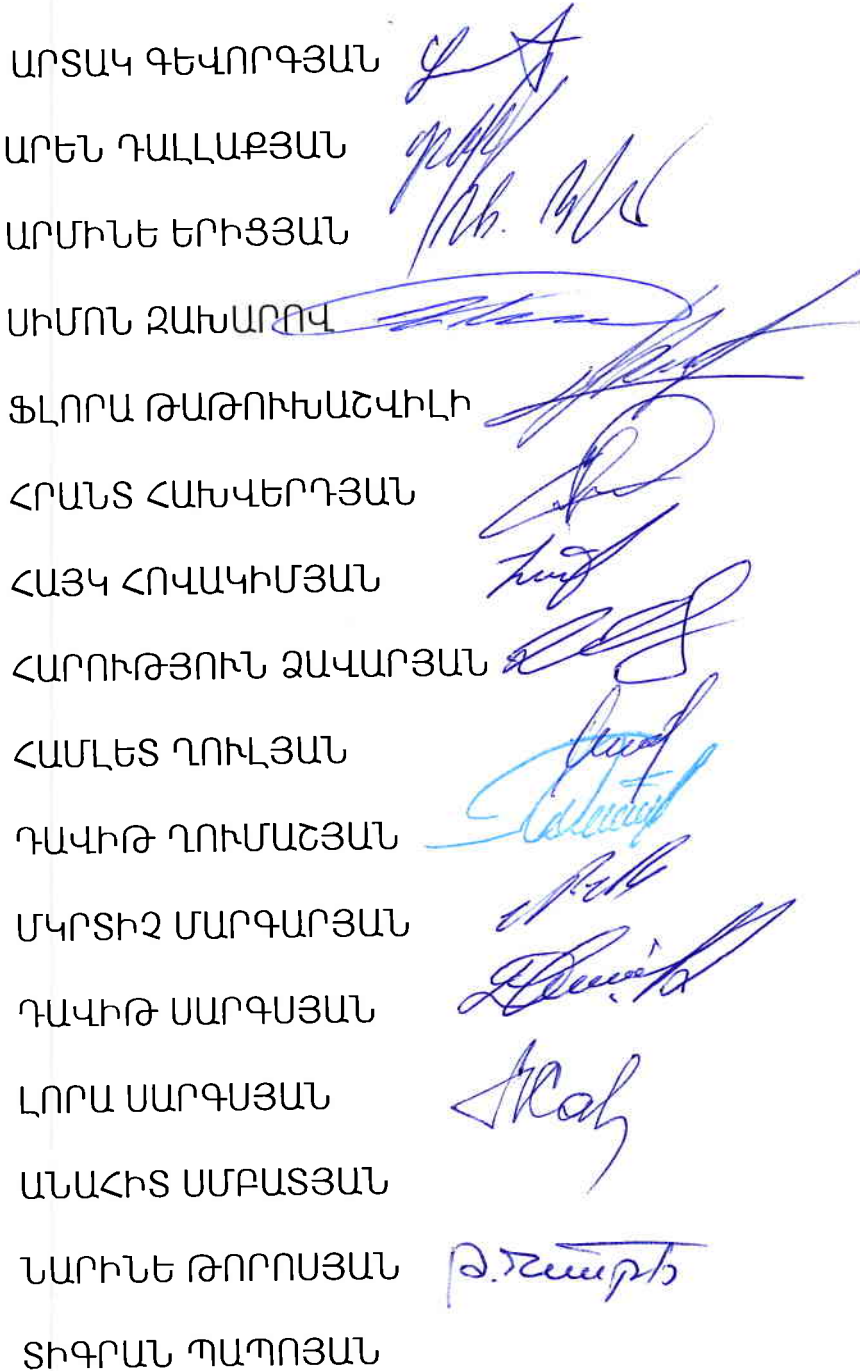 ԱՐՏԱԿ ԳԵՎՈՐԳՅԱՆ
ԱՐԵՆ ԴԱԼԼԱՔՅԱՆ
ԱՐՄԻՆԵ ԵՐԻՑՅԱՆ
ՍԻՄՈՆ ԶԱԽԱՐՈՎ
ՖԼՈՐԱ ԹԱԹՈՒԽԱՇՎԻԼԻ
ՀՐԱՆՏ ՀԱԽՎԵՐԴՅԱՆ
ՀԱՅԿ ՀՈՎԱԿԻՄՅԱՆ
ՀԱՐՈՒԹՅՈՒՆ ՁԱՎԱՐՅԱՆ
ՀԱՄԼԵՏ ՂՈՒԼՅԱՆ
ԴԱՎԻԹ ՂՈՒՄԱՇՅԱՆ
ՄԿՐՏԻՉ ՄԱՐԳԱՐՅԱՆ
ԴԱՎԻԹ ՍԱՐԳՍՅԱՆ
ԼՈՐԱ ՍԱՐԳՍՅԱՆ
ԱՆԱՀԻՏ ՍՄԲԱՏՅԱՆ
ՆԱՐԻՆԵ ԹՈՐՈՍՅԱՆ
ՏԻԳՐԱՆ ՊԱՊՈՅԱՆ